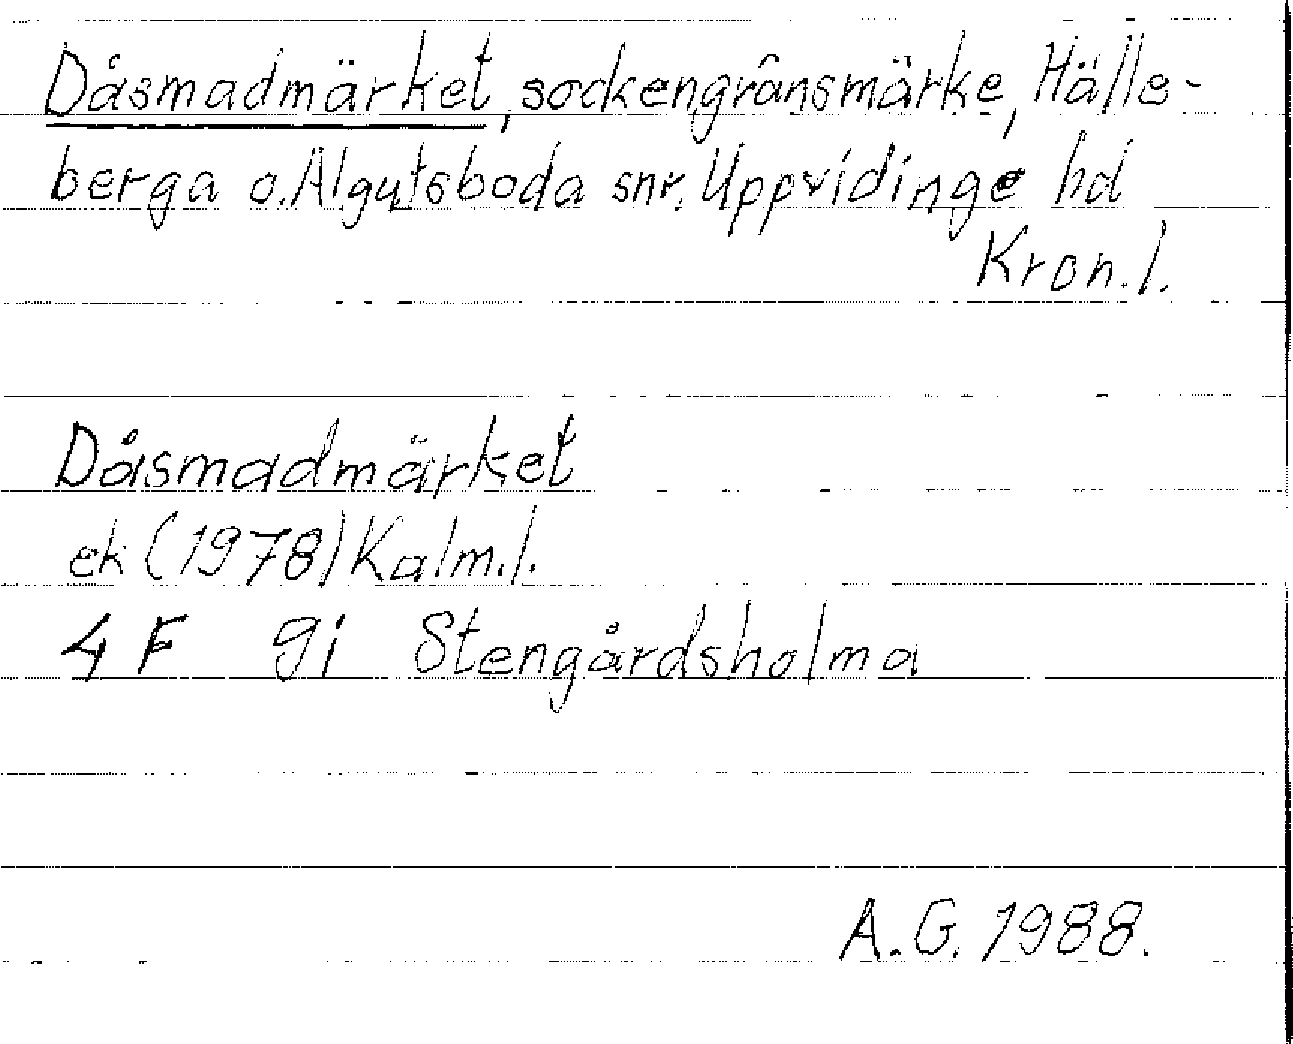 Dåsmadmärket, sockengränsmärke, Hälle-
berga o. Älgutsboda snr. Uppvidinge hd
Kron. l.
Dåsmadmärket
ek (1978) Kalm. l.
4 F 9i Stengårdsholma
A. G. 1988.